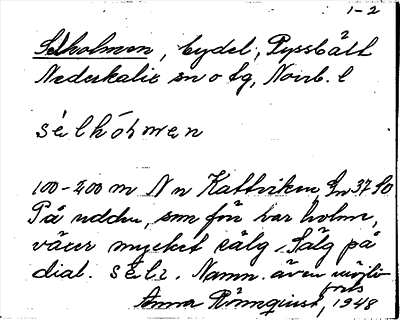 1-2
Selholmen, bydel, Pyssbält
Nederkalix sn o tg, Norrb. l
sèlhómen
100-200 m N n Kattviken Gn 37 SO
På udden, som för var holm,
växer mycket sälg. Sälg på
dial. sèli. Namn. även möjli
Anna Rönnquist, 1948